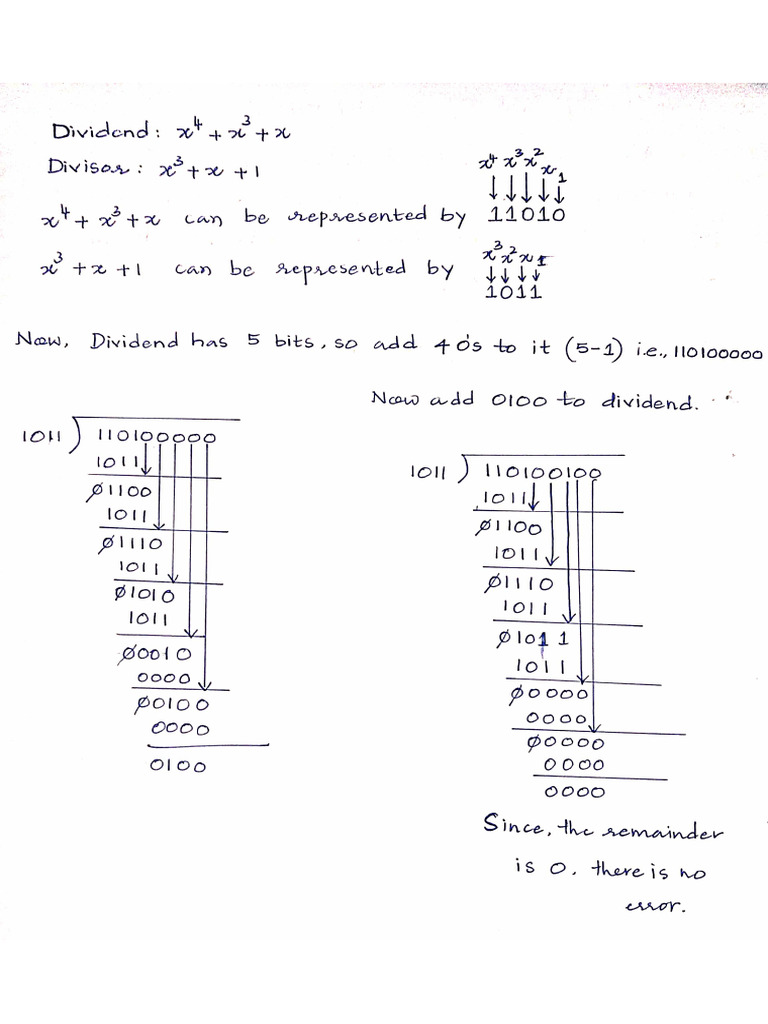 Dividend: x⁴ + x³ + x
Divisor: x³ + x + 1
x⁴ x³ x² x 1
↓ ↓ ↓ ↓ ↓
x⁴ + x³ + x can be represented by 11010
x³ x² x 1
↓ ↓ ↓ ↓
x³ + x + 1 can be represented by 1011
Now, Dividend has 5 bits, so add 4 0's to it (5-1) i.e., 110100000
1011 ) 110100000
1011
01100
1011
01110
1011
01010
1011
00010
0000
00100
0000
0100
Now add 0100 to dividend.
1011 ) 110100100
1011
01100
1011
01110
1011
01011
1011
00000
0000
00000
0000
0000
Since, the remainder
is 0. there is no
error.